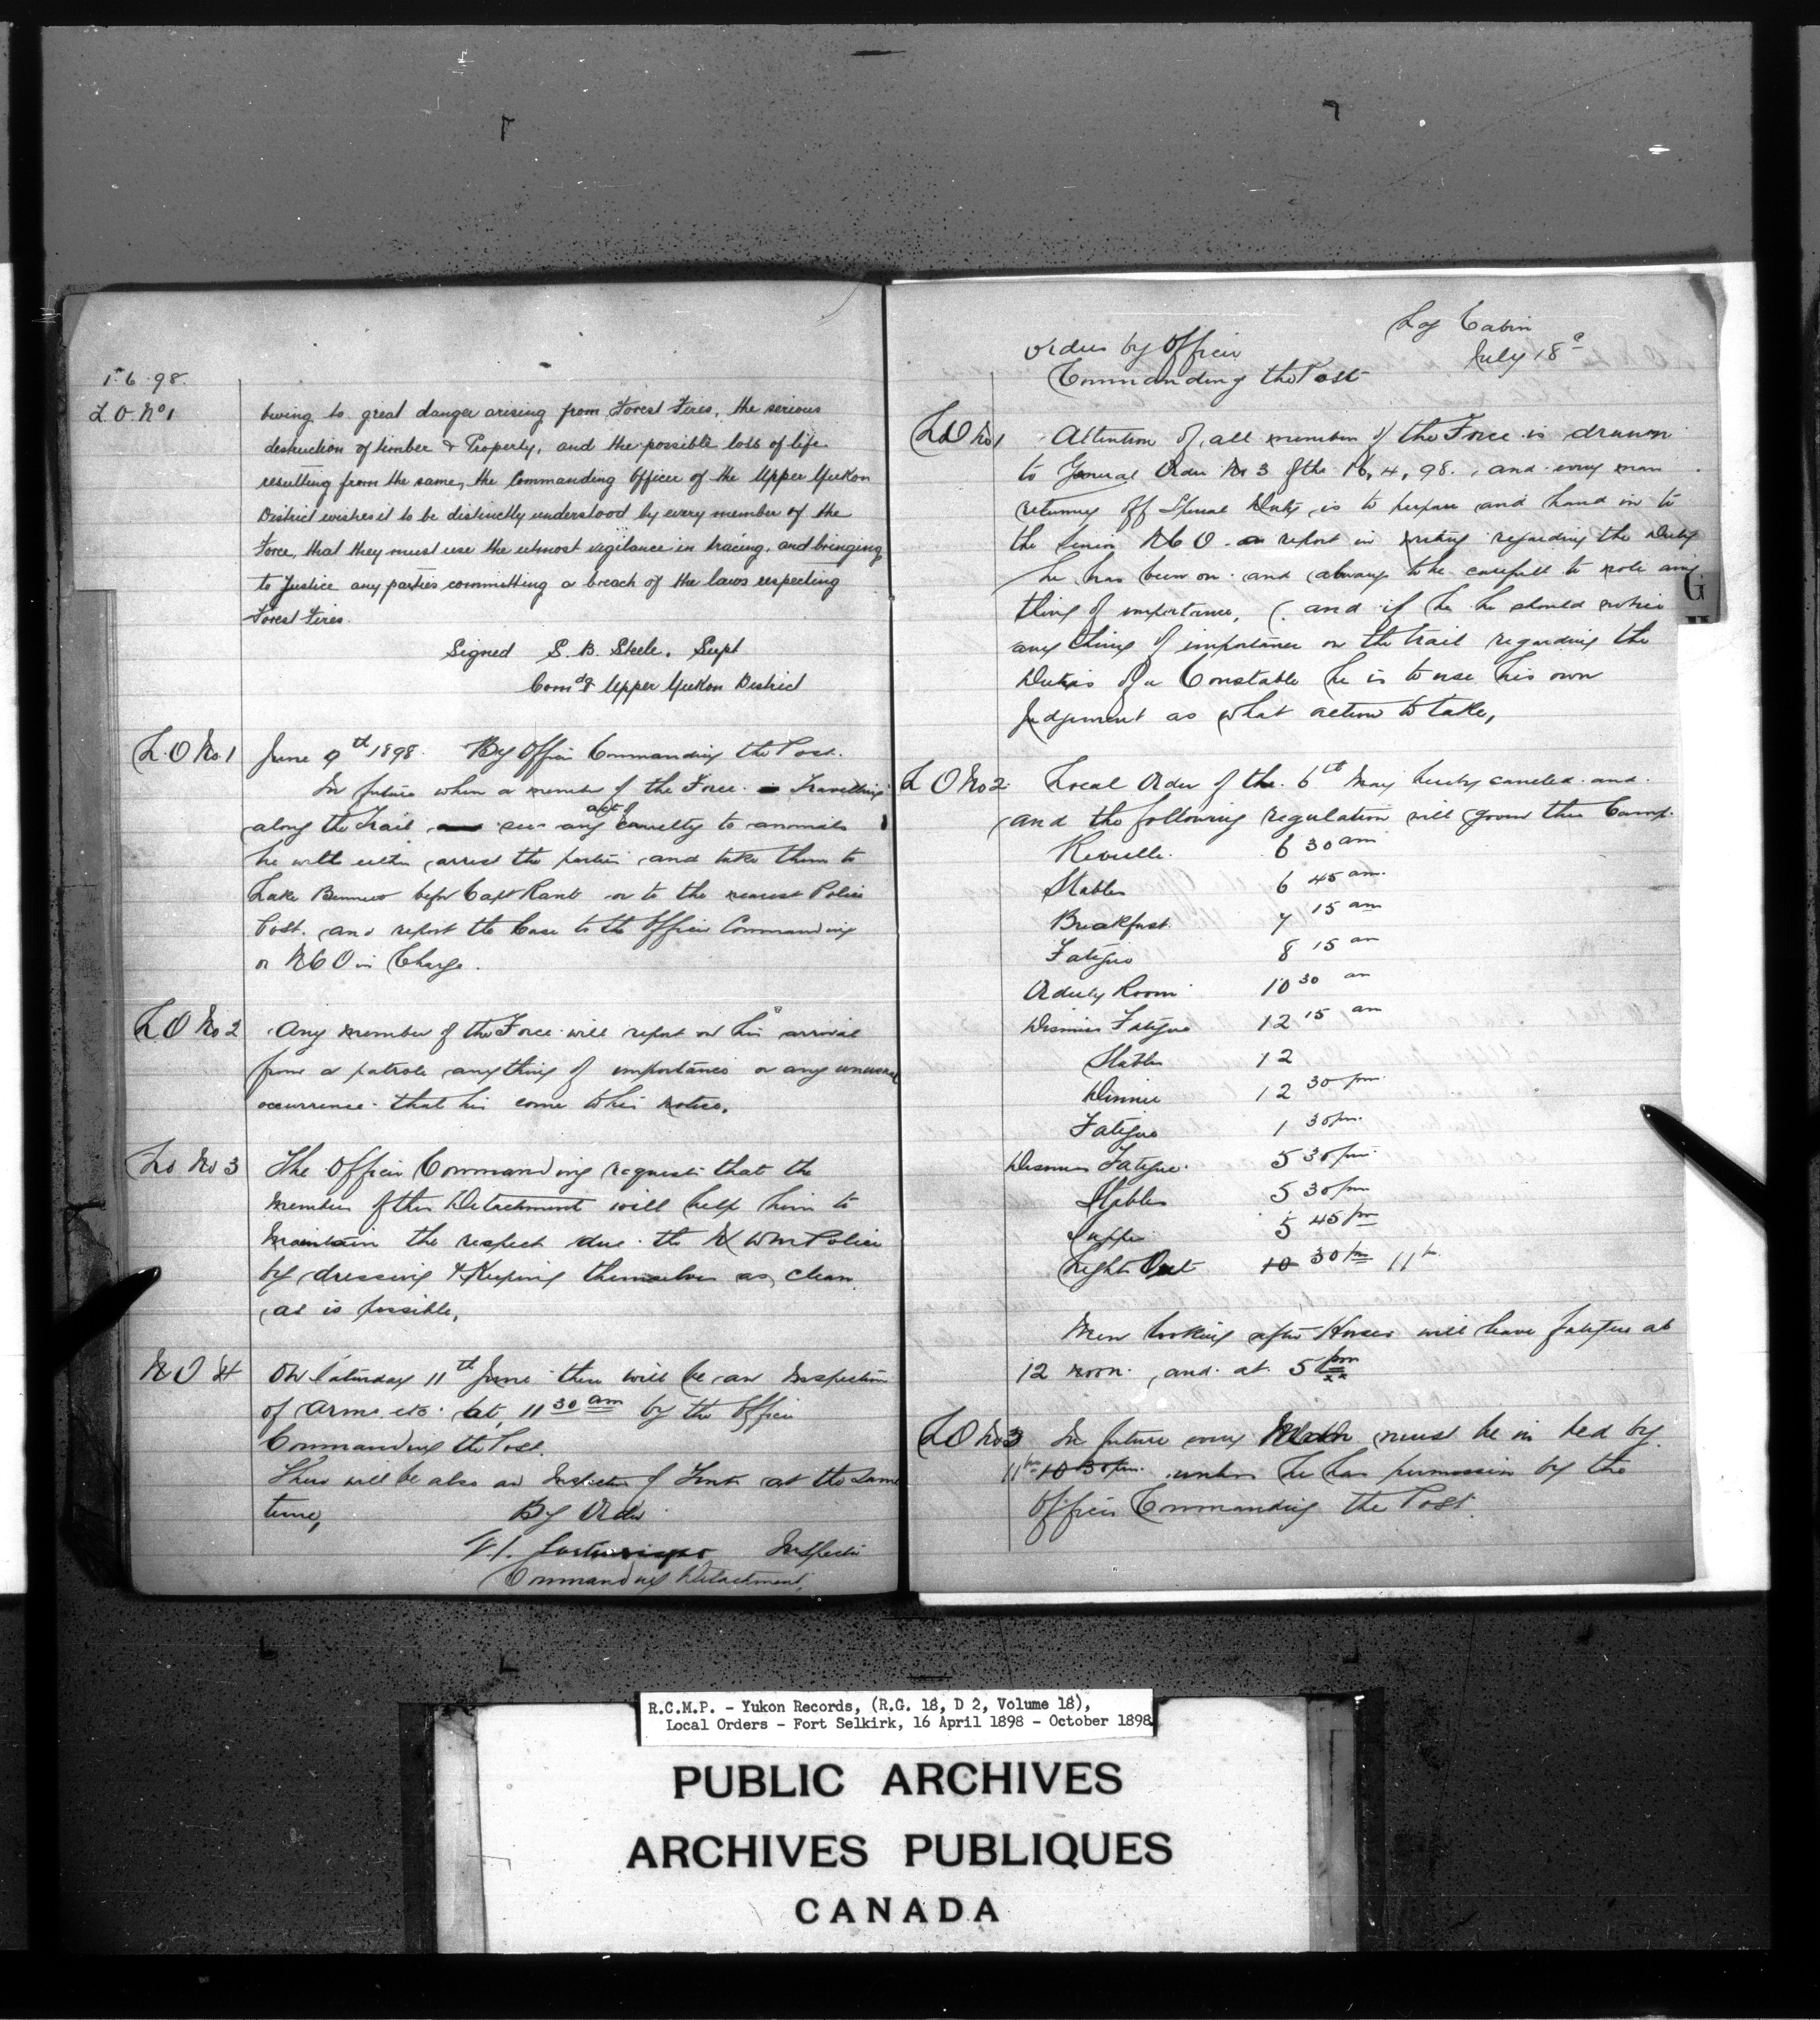 1.6.98.
L.O. No 1 Owing to great danger arising from Forest Fires, the serious
destruction of timber & Property, and the possible loss of life
resulting from the same, the Commanding Officer of the Upper Yukon
District wishes it to be distinctly understood by every member of the
Force, that they must use the utmost vigilance in tracing, and bringing
to Justice any parties committing a breach of the laws respecting
Forest Fires.
Signed S. B. Steele, Supt
Comdg Upper Yukon District
L.O No 1 June 9th 1898. By Officer Commanding the Post.
In future when a member of the Force Travelling
along the trail see any act of cruelty to animals
he will either arrest the parties and take them to
Lake Bennett before Capt Rant or to the nearest Police
Post. and report the Case to the Officer Commanding
or NCO in Charge.
L O No 2 Any member of the Force will report on his arrival
from a patrole anything of importance or any unusual
occurrence that his come to his notice.
Lo No 3 The Officer Commanding requests that the
members of this Detachment will help him to
maintain the respect due the N W M Police
by dressing & Keeping themselves as clean
as is possible,
N O 4 On Saturday 11th June there will be an Inspection
of arms etc at 11 30 am by the Officer
Commanding the Post.
There will be also an Inspection of Tents at the same
time, By Order
Inspector
Commanding Detachment,
Log Cabin
Orders by Officer July 18
Commanding the Post
LO No 1 Attention of all members of the Force is drawn
to General Order No 3 of the 16, 4, 98. and every man
returning off Special Duty is to prepare and hand in to
the Senior NCO a report in writing regarding the Duty
he has been on and always to be carefull to note any
thing of importance, (and if he he should notice
any thing of importance on the trail regarding the
Duties of a Constable he is to use his own
judgement as what action to take,
L O No 2 Local Order of the 6th May hereby canceled and
and the following regulation will govern this Camp.
Reveille. 6 30 am
Stables 6 45 am.
Breakfast 7 15 am
Fatigue 8 15 am
Orderly Room 10 30 am
Dismiss Fatigue 12 15 am
Stables 12
Dinner 12 30 pm
Fatigue 1 30 pm.
Dismiss Fatigue. 5 30 pm.
Stables 5 30 pm
Supper 5 45 pm
Lights Out 10 30 pm 11
Men looking after Horses will leave fatigue at
12 noon. and at 5 pm
LO No 3 In future every Man must be in bed by
11 10 30 pm. unless he has permission by the
Officer Commanding the Post.
G
R.C.M.P. - Yukon Records, (R.G. 18, D 2, Volume 18),
Local Orders - Fort Selkirk, 16 April 1898 - October 1898
PUBLIC ARCHIVES
ARCHIVES PUBLIQUES
CANADA